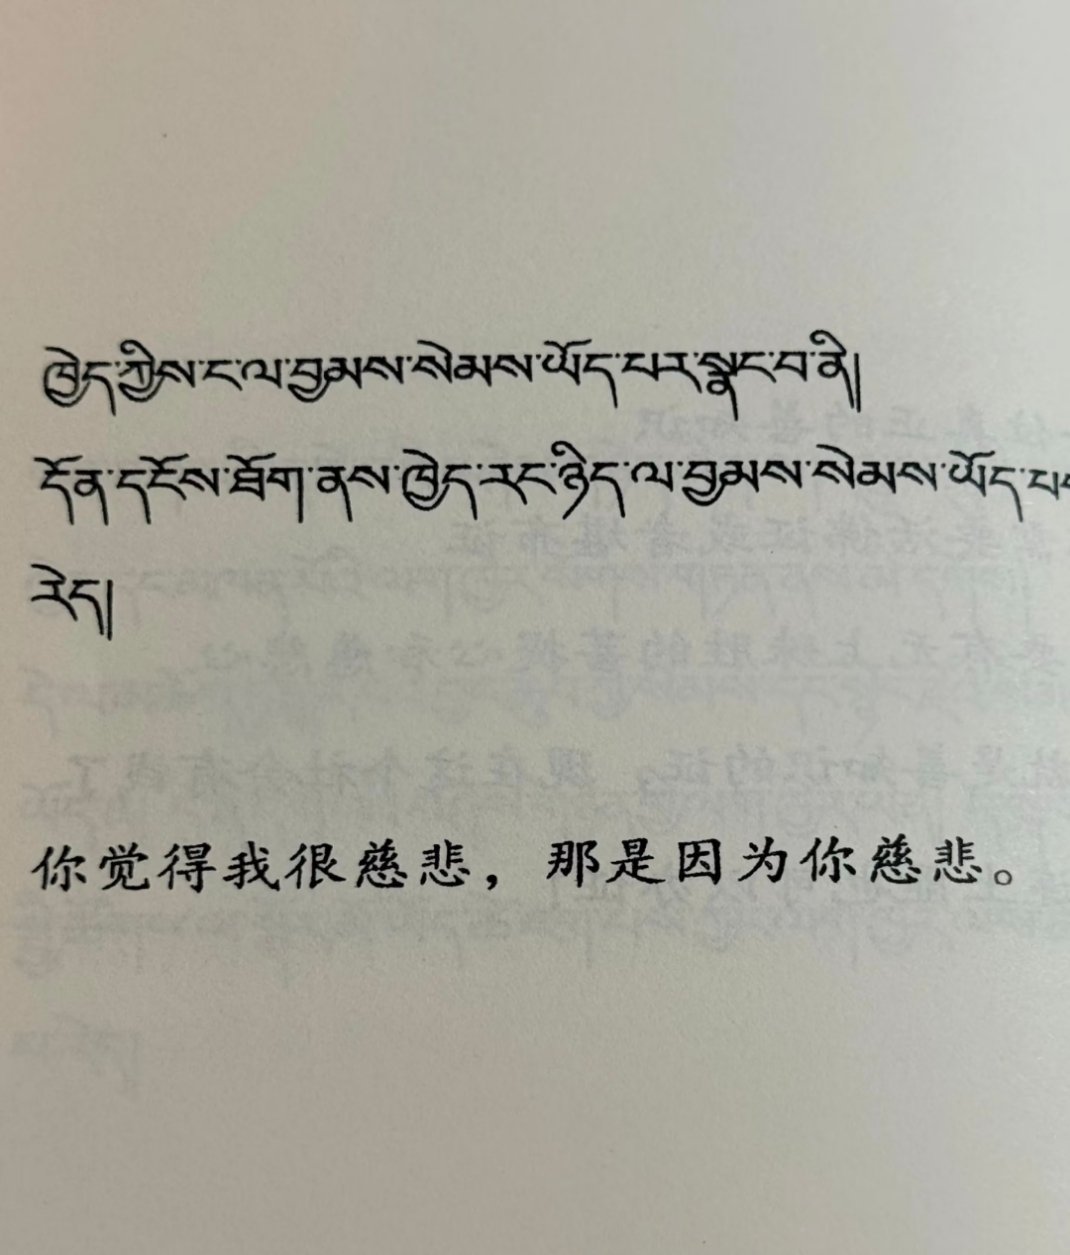 ཁྱེད་ཀྱིས་ང་ལ་བྱམས་སེམས་ཡོད་པར་སྣང་བ་ནི།
དོན་དངོས་ཐོག་ནས་ཁྱེད་རང་ཉིད་ལ་བྱམས་སེམས་ཡོད་
རེད།
你觉得我很慈悲，那是因为你慈悲。